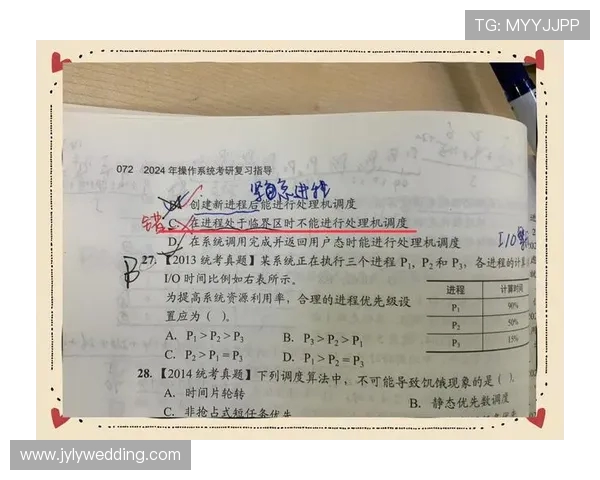 TG: MYYJJPP
072 2024年操作系统考研复习指导
紧急进程
B. 创建新进程后能进行处理机调度
错 C. 在进程处于临界区时不能进行处理机调度
D. 在系统调用完成并返回用户态时能进行处理机调度
I/O
B 27.【2013统考真题】某系统正在执行三个进程 P₁, P₂ 和 P₃, 各进程的计算
I/O 时间比例如右表所示。
进程 计算时间
为提高系统资源利用率，合理的进程优先级设
P₁ 90%
置应为（ ）。
P₂ 50%
A. P₁ > P₂ > P₃ B. P₃ > P₂ > P₁
P₃ 15%
C. P₂ > P₁ = P₃ D. P₁ > P₂ = P₃
28.【2014统考真题】下列调度算法中，不可能导致饥饿现象的是（ ）。
A. 时间片轮转 B. 静态优先数调度
C. 非抢占式短任务优先
www.jylywedding.com